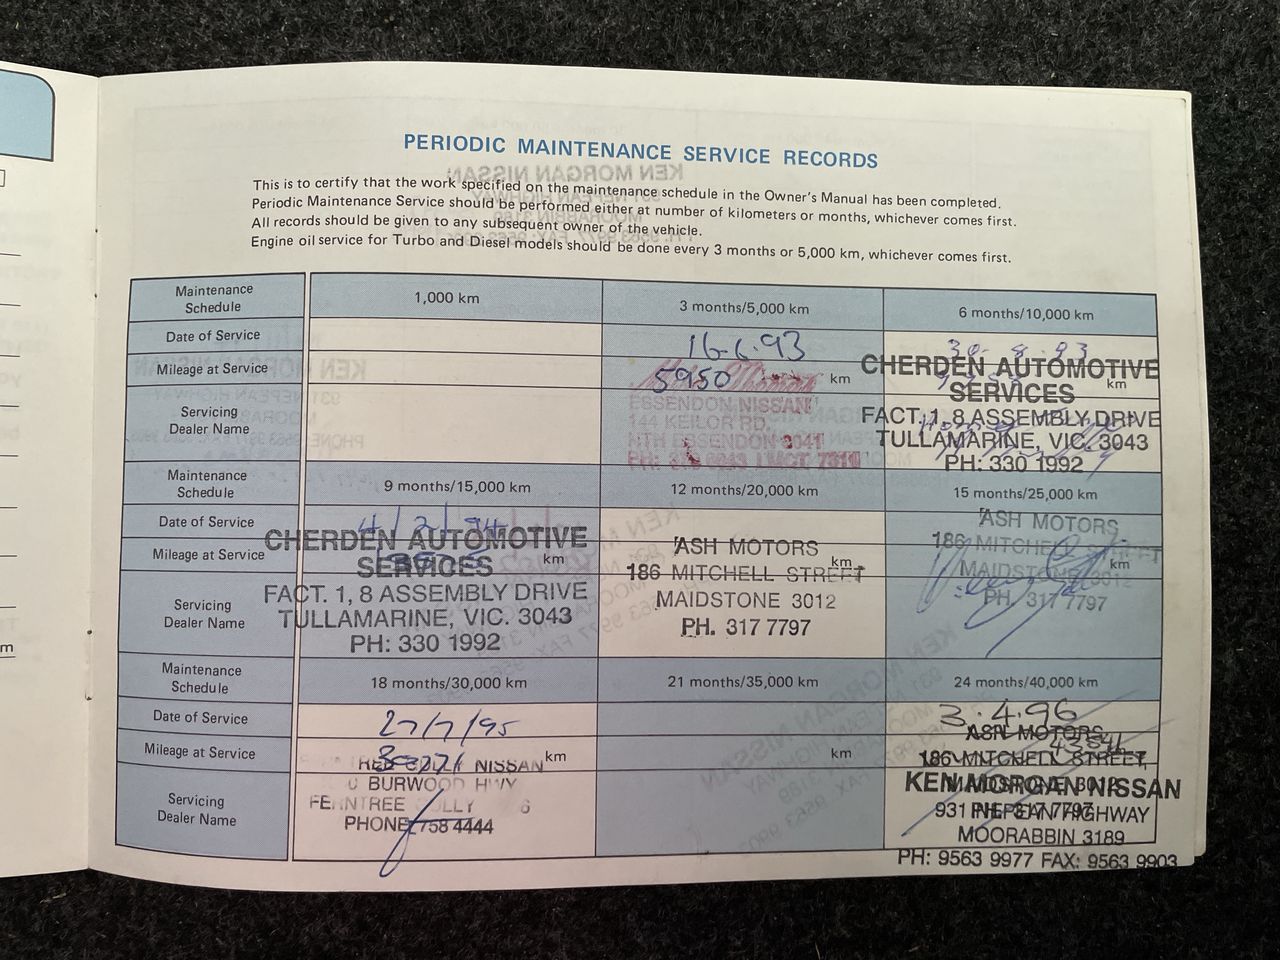 PERIODIC MAINTENANCE SERVICE RECORDS
This is to certify that the work specified on the maintenance schedule in the Owner's Manual has been completed.
Periodic Maintenance Service should be performed either at number of kilometers or months, whichever comes first.
All records should be given to any subsequent owner of the vehicle.
Engine oil service for Turbo and Diesel models should be done every 3 months or 5,000 km, whichever comes first.
Maintenance Schedule 1,000 km 3 months/5,000 km 6 months/10,000 km
Date of Service 16.6.93 30.8.93
Mileage at Service 5950 km km
Servicing Dealer Name
ESSENDON NISSAN
144 KEILOR RD.
NTH ESSENDON 3041
PH: LMCT 7311
CHERDEN AUTOMOTIVE
SERVICES
FACT. 1, 8 ASSEMBLY DRIVE
TULLAMARINE, VIC. 3043
PH: 330 1992
Maintenance Schedule 9 months/15,000 km 12 months/20,000 km 15 months/25,000 km
Date of Service 4/2/94
Mileage at Service km km km
Servicing Dealer Name
CHERDEN AUTOMOTIVE
SERVICES
FACT. 1, 8 ASSEMBLY DRIVE
TULLAMARINE, VIC. 3043
PH: 330 1992
ASH MOTORS
186 MITCHELL STREET
MAIDSTONE 3012
PH. 317 7797
ASH MOTORS
186 MITCHELL STREET
MAIDSTONE 3012
PH. 317 7797
Maintenance Schedule 18 months/30,000 km 21 months/35,000 km 24 months/40,000 km
Date of Service 27/7/95 3.4.96
Mileage at Service km km
Servicing Dealer Name
NISSAN
BURWOOD HWY
FERNTREE GULLY
PHONE 758 4444
ASH MOTORS
186 MITCHELL STREET,
MAIDSTONE 3012
PH. 317 7797
KEN MORGAN NISSAN
931 NEPEAN HIGHWAY
MOORABBIN 3189
PH: 9563 9977 FAX: 9563 9903
m